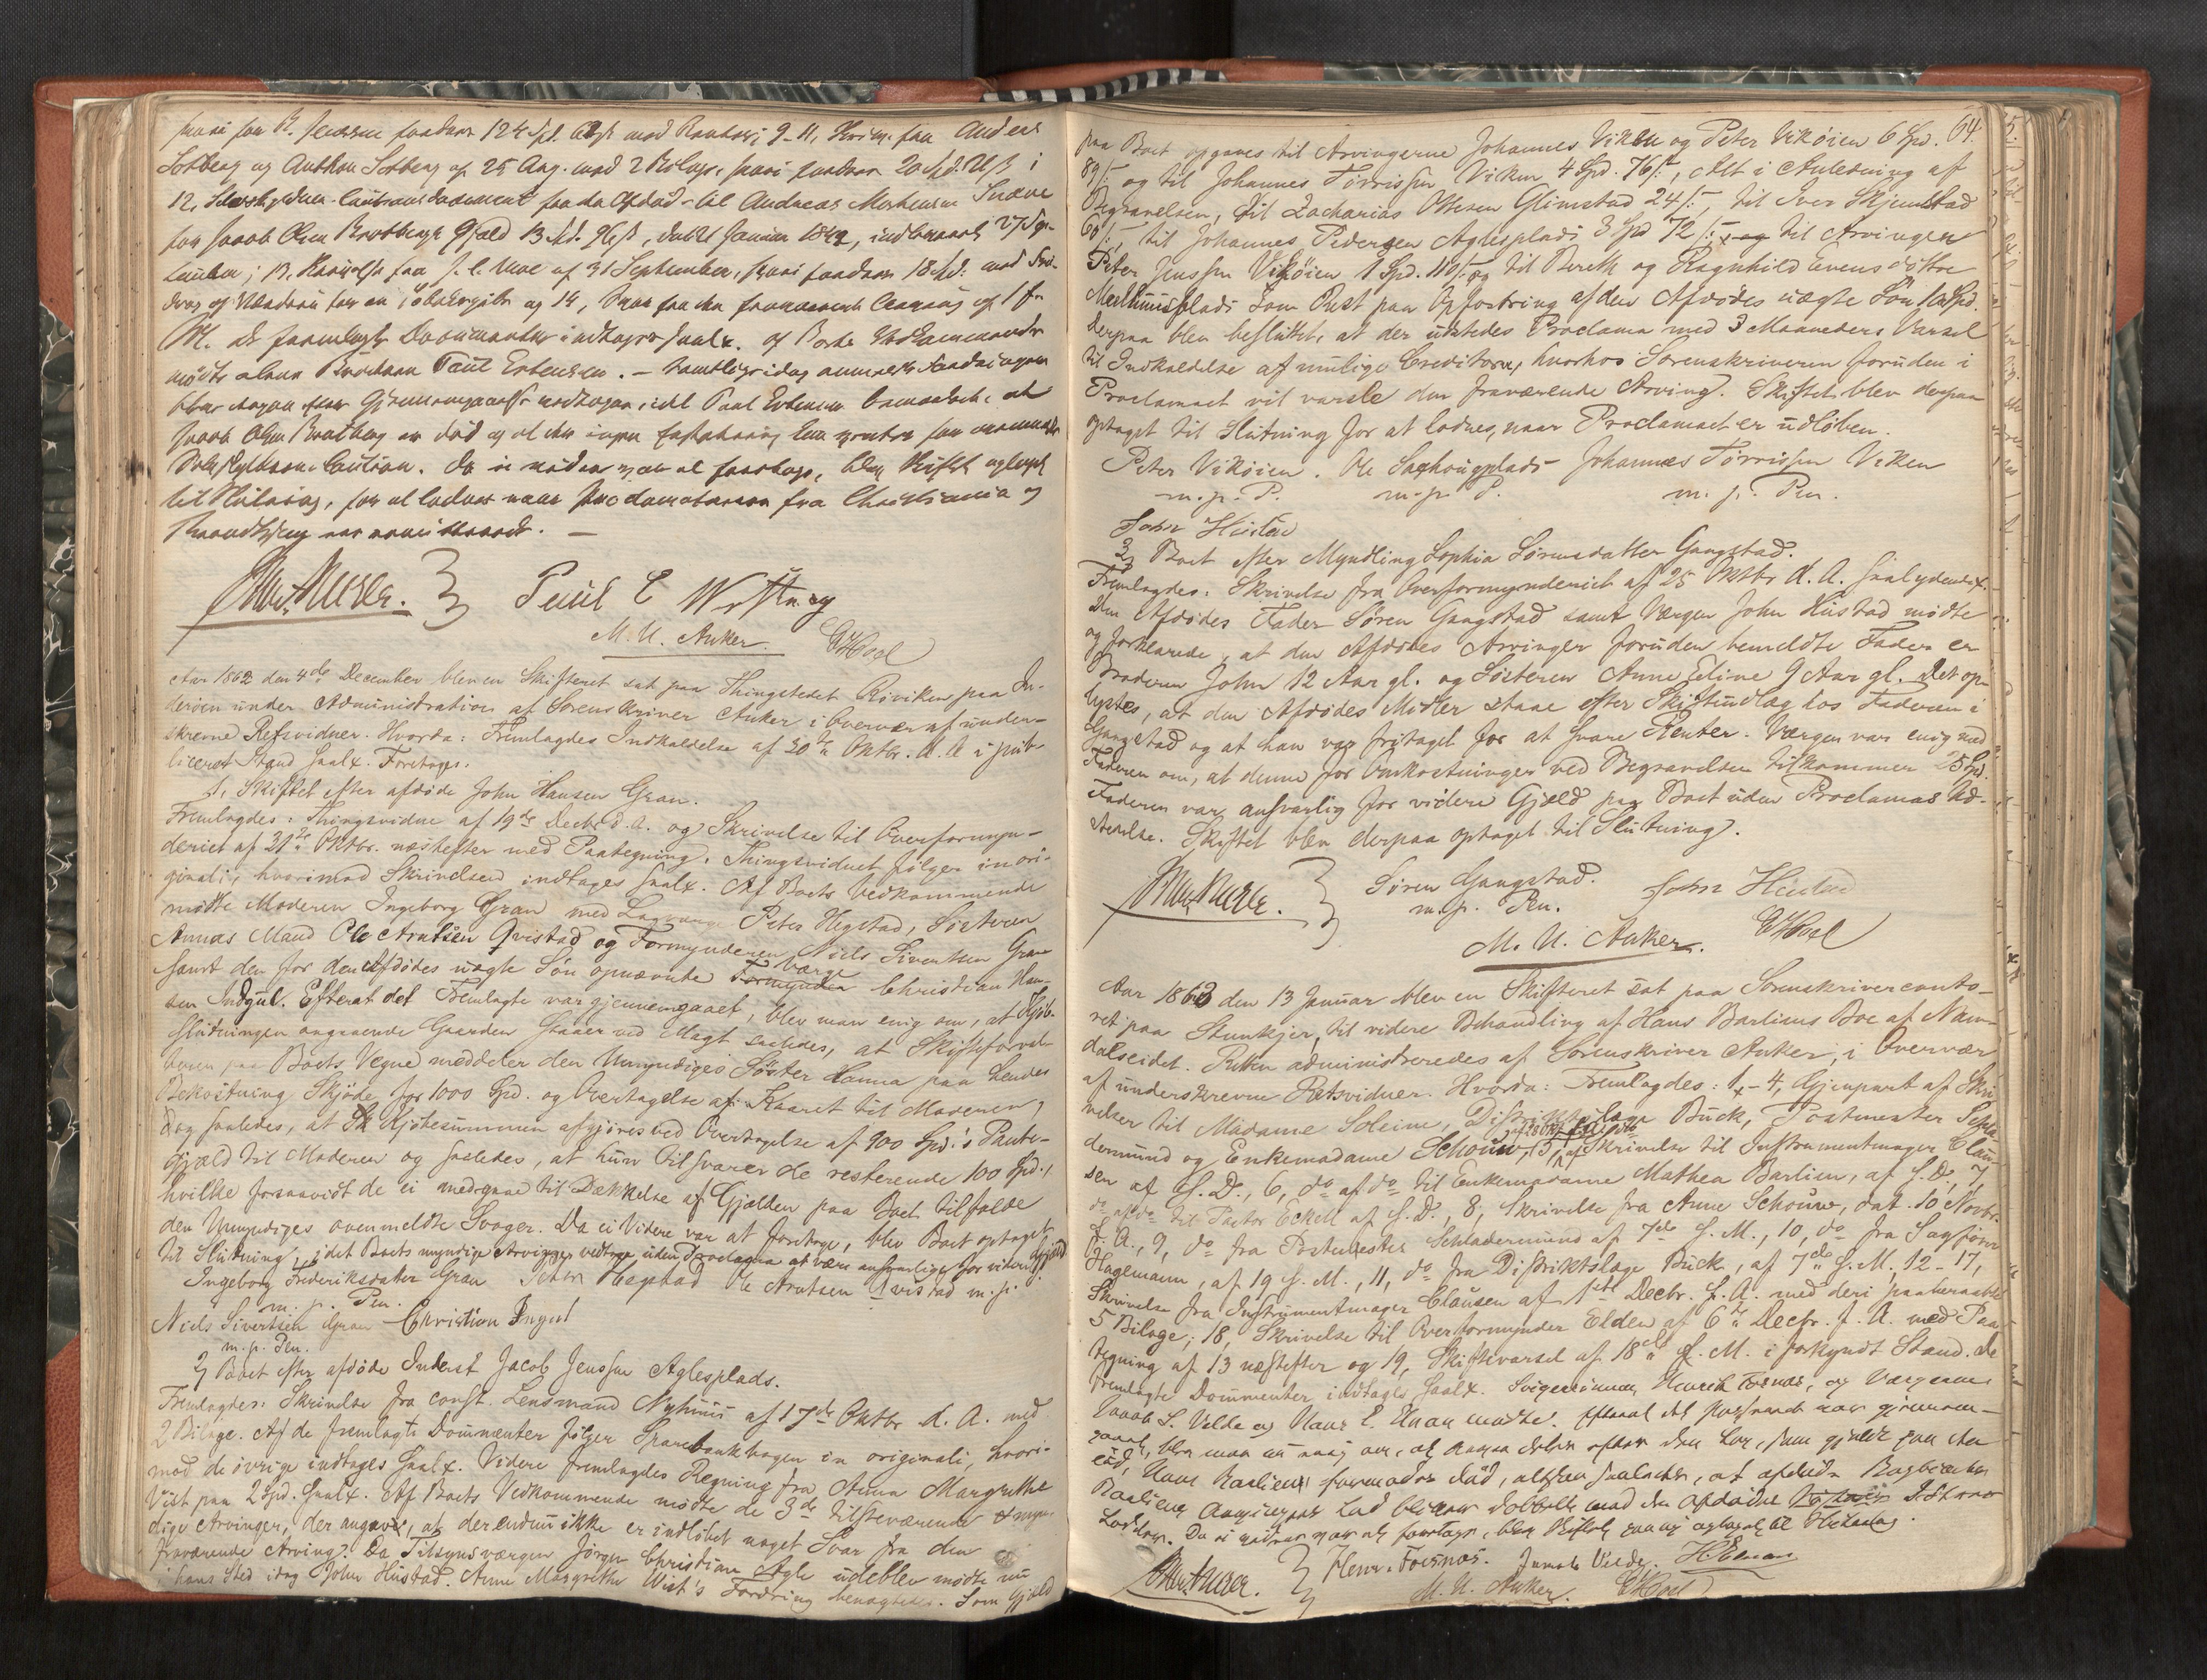 12, Selvskyldner-Cautionsdocument fra den Afdøde til Andreas Mortensen Snæve
for Jacob Olsen Bratbergs Gjæld
M. de fremlagte Documenter indtages saalx. Af Boets Vedkommende
mødte alene Broderen Paul Estensen. –
Jacob Olsen Bratberg er død og at der ingen
Selvskyldner Caution. Da ei videre var at foretage, blev Skiftet optaget
til Slutning, for at lodnes naar Proclamaterne fra Christiania og
Throndhjem
M. U. Anker. EHoel
Aar 1862 den 4de December blev en Skifteret sat paa Thingstedet Røviken paa In-
derøen under Administration af Sorenskriver Anker i Overvær af under-
skrevne Retsvidner. Hvorda: Fremlagdes Indkaldelse af 30te Oktbr. d. A. i pub-
liceret Stand saalx. Foretoges:
1, Skiftet efter afdøde John Hansen Gran.
Fremlagdes: Thingsvidne af 19de Decbr d. A. og Skrivelse til Overformyn-
deriet af 21de Oktbr. næstefter med Paategning. Thingsvidnet følger in ori-
ginali, hvorimod Skrivelsen indtages saalx. Af Boets Vedkommende
mødte Moderen Ingeborg Gran med Laugværge Peter Hegstad, Søsteren
Annas Mand Ole Arntsen Qvistad og Formynderen Niels Sivertsen Gran
samt den for den Afdødes uægte Søn opnævnte Formynder Værge Christian Han-
sen Ingul. Efterat det Fremlagte var gjennemgaaet, blev man enig om, at Kjøb-
slutningen angaaende Gaarden staaer ved Magt saaledes, at Skifteforval-
teren paa Boets Vegne meddeler den Umyndiges Søster Hanna paa hendes
Bekostning Skjøde for 1000 Spd. og Overtagelse af Kaaret til Moderen,
dog saaledes, at Kjøbesummen afgjøres ved Overtagelse af 900 Spd.'s Pante-
gjæld til Moderen og saaledes, at hun tilsvarer de resterende 100 Spd.,
hvilke forsaavidt de ei medgaae til Dækkelse af Gjælden paa Boet tilfalde
den Umyndiges ovenmeldte Svoger. Da ei Videre var at foretage, blev Boet optaget
til Slutning, idet Boets myndige Arvinger vedtoge uden Proclama at være ansvarlige for videre Gjæld
Ingeborg Frederiksdatter Gran Peter Hegstad Ole Arntsen Qvistad m. p.
m. p. Pen.
Niels Sivertsen Gran Christian Ingul
m. p. Pen.
2, Boet efter afdøde Inderst Jacob Jenssen Aglesplads.
Fremlagdes: Skrivelse fra const. Lensmand Nyhuus af 17de Oktbr. d. A. med
2 Bilage. Af de fremlagte Doumenter følger Sparebankbogen in originali, hvori-
mod de øvrige indtages saalx. Videre fremlagdes Regning fra Anna Margrethe
Vist paa 2 Spd. saalx. Af Boets Vedkommende mødte de 3de tilstedeværende myn-
dige Arvinger, der angave, at der endnu ikke er indløbet noget Svar fra den
fraværende Arving. Da Tilsynsværgen Jørgen Christian Agle udeblev mødte nu
i hans Sted idag John Hustad. Anne Margrethe Wist's Fordring benægtedes. Som Gjæld
64
paa Boet opgaves til Arvingerne Johannes Viken og Peter Vikøien 6 Spd.
89 /: og til Johannes Tørrissen Viken 4 Spd. 76 /:, Alt i Anledning af
Begravelsen, til Zacharias Ottesen Glimstad 24 /:, til Iver Skjemstad
60 /:, til Johannes Pedersen Aglesplads 3 Spd 72 /:, og til Arvingen
Peter Jenssen Vikøien 1 Spd. 110 /: og til Bereth og Ragnhild Evensdøttre
som Rest paa Opfostring af den Afdødes uægte Søn 10 Spd.
Derpaa blev besluttet, at der udstedes Proclama med 3 Maaneders Varsel
til Indkaldelse af mulige Creditorer, hvorhos Sorenskriveren foruden i
Proclamaet vil varsle den fraværende Arving. Skiftet blev derpaa
optaget til Slutning for at lodnes, naar Proclamaet er udløben.
Peter Vikøien. Ole Saxhougplads Johannes Tørrissen Viken
m. p. P. m. p. P. m. p. Pen.
John Hustad
3, Boet efter Myndling Sophia Sørensdatter Gangstad.
Fremlagdes: Skrivelse fra Overformynderiet af 25 Oktbr d. A. saalydende x.
Den Afdødes Fader Søren Gangstad samt Værgen John Hustad mødte
og forklarede, at den Afdødes Arvinger foruden bemeldte Fader er
Broderen John 12 Aar gl. og Søsteren Anne Eline 9 Aar gl. Det op-
lystes, at den Afdødes Midler staae efter Skifteudlæg hos Faderen i
Gangstad og at han var fritaget for at svare Renter. Værgen var enig med
Faderen om, at denne for Omkostninger ved Begravelsen tilkommer 25 Spd.
Faderen var ansvarlig for videre Gjæld paa Boet uden Proclamas Ud-
stedelse. Skiftet blev derpaa optaget til Slutning.
Søren Gangstad. John Hustad
m. p. Pen.
M. U. Anker. EHoel
Aar 1863 den 13 Januar blev en Skifteret sat paa Sorenskrivercontо-
ret paa Stenkjer, til videre Behandling af Hans Barliens Boe af Nam-
dalseidet. Retten administreredes af Sorenskriver Anker, i Overvær
af underskrevne Retsvidner. Hvorda: Fremlagdes: 1,-4, Gjenpart af Skri-
velser til Madame Soleim, Distriktslæge Buck, Postmester Schla-
dermund og Enkemadame Schouw, 5, af Skrivelse til Instrumentmager Clau-
sen af S. D., 6, do af do til Enkemadame Mathea Barlien, af S. D., 7,
do af do til Pastor Eckell af S. D., 8, Skrivelse fra Anne Schouw, dat. 10 Novbr.
f. A., 9, do fra Postmester Schladermund af 7de s. M., 10, do fra Sagfører
Hagemann, af 19 s. M., 11, do fra Distriktslæge Buck, af 7de s. M., 12-17,
Skrivelse fra Instrumentmager Clausen af 1ste Decbr. f. A. med deri paaberaabte
5 Bilage; 18, Skrivelse til Overformynder Elden af 6te Decbr. f. A. med Paa-
tegning af 13 næstefter og 19, Skiftevarsel af 18de s. M. i forkyndt Stand. De
fremlagte Doumenter indtages saalx. Svigersønnen Henrik Fosnæs, og Værgerne
Jacob L. Velde og Hans E. Elnan mødte. Efterat det Passerede var gjennem-
gaaet, blev man nu enig om, at
Lodder. Da ei videre var at foretage, blev Skiftet paany optaget til Slutning.
M. U. Anker. EHoel